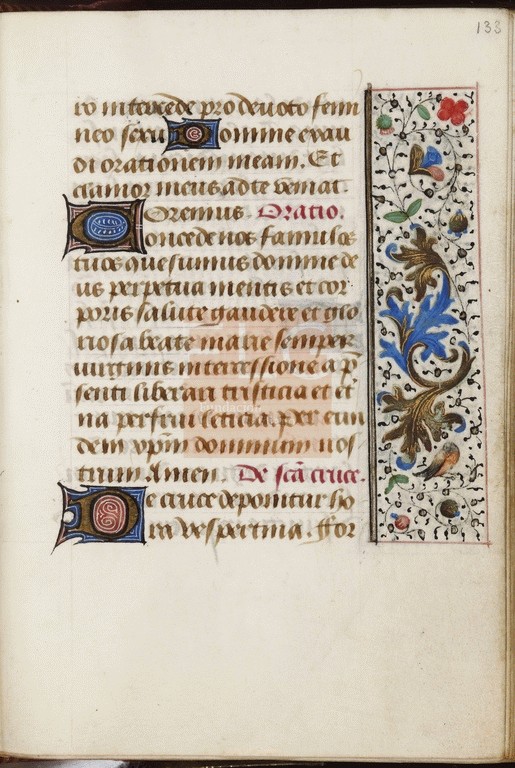 133
ro intercede pro deuoto femi
neo sexu Domine exau
di orationem meam. Et
clamor meus ad te veniat.
Oremus. Oratio.
Concede nos famulos
tuos quesumus domine de
us perpetua mentis et cor
poris salute gaudere et glo
riosa beate marie semper
uirginis intercessione a p̄
senti liberari tristicia et et̄
na perfrui leticia. Per eun
dem xp̄m dominum nos
trum Amen. De sc̄a cruce.
De cruce deponitur ho
ra vespertina. ffor
fundación